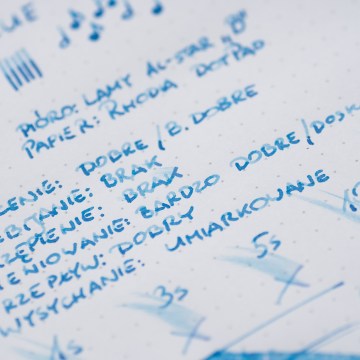 UE
PIÓRO: LAMY AL-STAR "B"
PAPIER: RHODIA DOTPAD
LENIE: DOBRE / B. DOBRE
EBIJANIE: BRAK
ZĘPIENIE: BRAK
TENIOWANIE: BARDZO DOBRE / DOSK
RZEPŁYW: DOBRY
WYSYCHANIE: UMIARKOWANE
1s 3s 5s 10